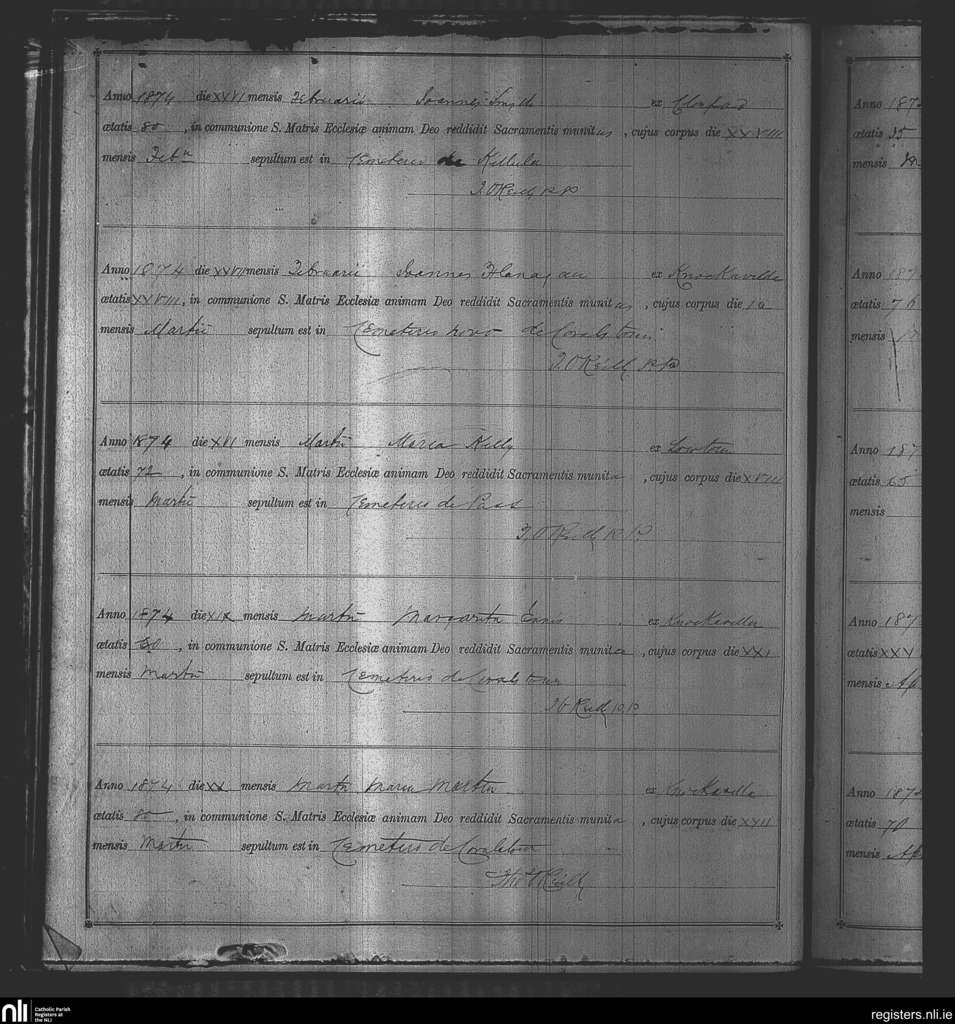 Anno 1874 die XXVI mensis Februarii Joannes Smyth ex
ætatis 80, in communione S. Matris Ecclesiæ animam Deo reddidit Sacramentis munitus, cujus corpus die XXVIII
mensis Feb sepultum est in Cemeterio de Killula
J OReilly P.P
Anno 1874 die XXVII mensis Februarii Joannes Flanagan ex Knockaville
ætatis XXVIII, in communione S. Matris Ecclesiæ animam Deo reddidit Sacramentis munitus, cujus corpus die
mensis Martii sepultum est in Cemeterio novo de Coralstown
J OReilly P.P
Anno 1874 die XVI mensis Martii Maria Kelly ex Lowtown
ætatis 72, in communione S. Matris Ecclesiæ animam Deo reddidit Sacramentis munita, cujus corpus die XVIII
mensis Martii sepultum est in Cemeterio de Pass
J OReilly P.P.
Anno 1874 die XIX mensis Martii Margarita Ennis ex Knockaville
ætatis, in communione S. Matris Ecclesiæ animam Deo reddidit Sacramentis munita, cujus corpus die XXI
mensis Martii sepultum est in Cemeterio de Coralstown
P.P
Anno 1874 die XX mensis Martii Maria Martin ex Knockaville
ætatis 80, in communione S. Matris Ecclesiæ animam Deo reddidit Sacramentis munita, cujus corpus die XXII
mensis Martii sepultum est in Cemeterio de Coralstown
Thos OReilly
Anno 187
ætatis 35
mensis
Anno 187
ætatis 76
mensis
Anno 187
ætatis 65
mensis
Anno 187
ætatis XXV
mensis Ap
Anno 187
ætatis 70
mensis Ap
nli Catholic Parish
Registers at
the NLI
registers.nli.ie